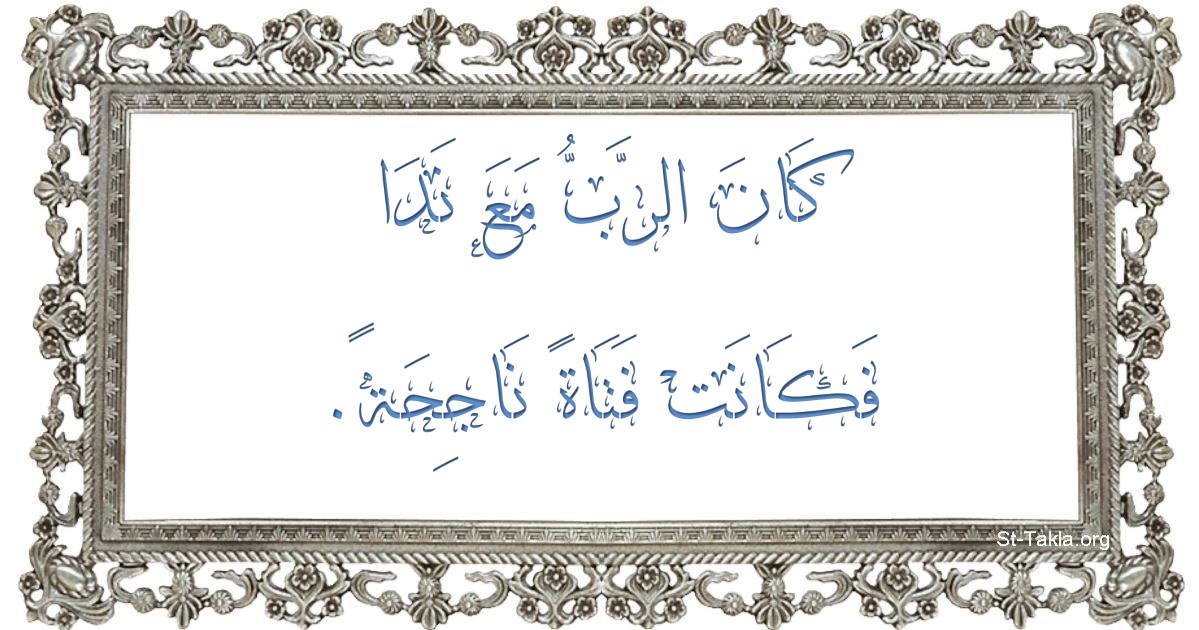 كَانَ الرَّبُّ مَعَ نَدَا
فَكَانَت فَتَاةً نَاجِحَةً.
St-Takla.org